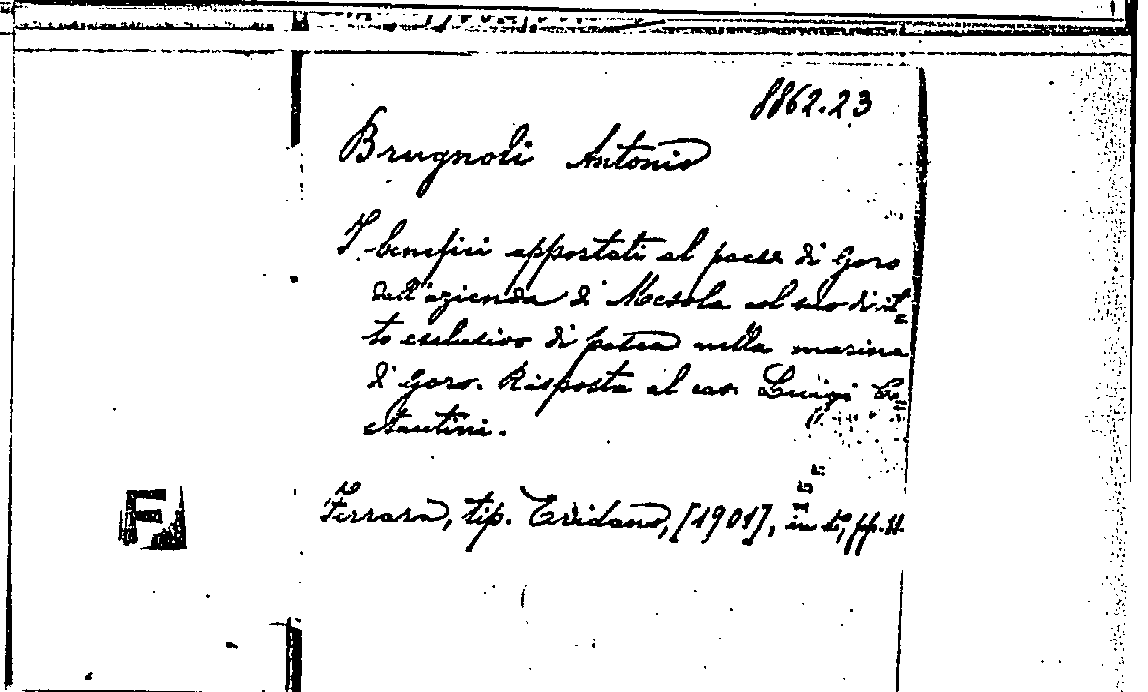 8862.23
Brugnoli Antonio
I benefici apportati al paese di Goro
dall'azienda di Mesola col suo dirit=
to esclusivo di pesca nella marina
di Goro. Risposta al cav. Luigi
Ferrara, tip. Eridano, [1901], in 8°, pp. 11.
F